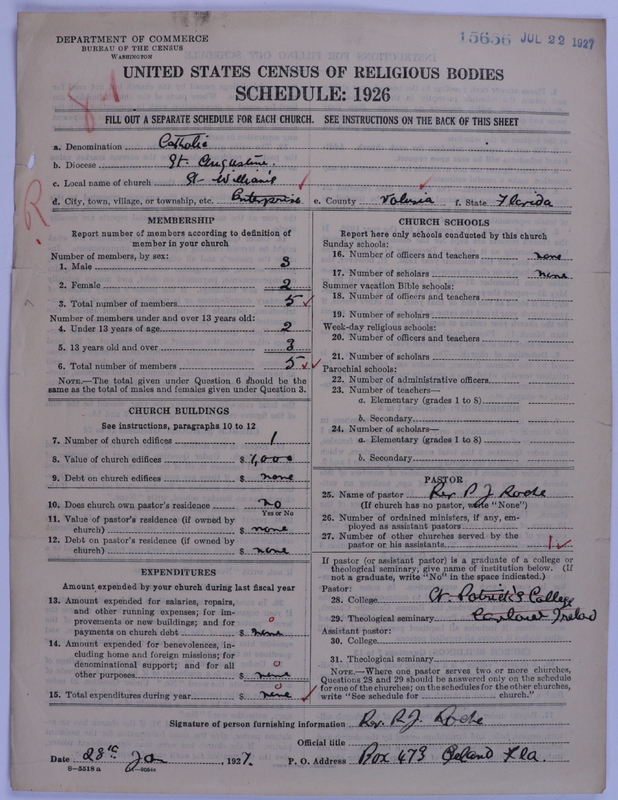 DEPARTMENT OF COMMERCE
BUREAU OF THE CENSUS
WASHINGTON
15656 JUL 22 1927
UNITED STATES CENSUS OF RELIGIOUS BODIES
SCHEDULE: 1926
FILL OUT A SEPARATE SCHEDULE FOR EACH CHURCH. SEE INSTRUCTIONS ON THE BACK OF THIS SHEET
a. Denomination Catholic
b. Diocese St. Augustine.
c. Local name of church St. William's
d. City, town, village, or township, etc. Enterprise e. County Volusia f. State Florida
MEMBERSHIP
Report number of members according to definition of
member in your church
Number of members, by sex:
1. Male 3
2. Female 2
3. Total number of members 5
Number of members under and over 13 years old:
4. Under 13 years of age 2
5. 13 years old and over 3
6. Total number of members 5
NOTE.—The total given under Question 6 should be the
same as the total of males and females given under Question 3.
CHURCH BUILDINGS
See instructions, paragraphs 10 to 12
7. Number of church edifices 1
8. Value of church edifices $ 1,000
9. Debt on church edifices $ none
10. Does church own pastor's residence no
Yes or No
11. Value of pastor's residence (if owned by
church) $ none
12. Debt on pastor's residence (if owned by
church) $ none
EXPENDITURES
Amount expended by your church during last fiscal year
13. Amount expended for salaries, repairs,
and other running expenses; for im-
provements or new buildings; and for
payments on church debt $ none 0
14. Amount expended for benevolences, in-
cluding home and foreign missions; for
denominational support; and for all
other purposes $ none 0
15. Total expenditures during year $ none 0
CHURCH SCHOOLS
Report here only schools conducted by this church
Sunday schools:
16. Number of officers and teachers none
17. Number of scholars none
Summer vacation Bible schools:
18. Number of officers and teachers
19. Number of scholars
Week-day religious schools:
20. Number of officers and teachers
21. Number of scholars
Parochial schools:
22. Number of administrative officers
23. Number of teachers—
a. Elementary (grades 1 to 8)
b. Secondary
24. Number of scholars—
a. Elementary (grades 1 to 8)
b. Secondary
PASTOR
25. Name of pastor Rev. P J Roche
(If church has no pastor, write "None")
26. Number of ordained ministers, if any, em-
ployed as assistant pastors
27. Number of other churches served by the
pastor or his assistants 1
If pastor (or assistant pastor) is a graduate of a college or
theological seminary, give name of institution below. (If
not a graduate, write "No" in the space indicated.)
Pastor:
28. College St. Patrick's College
29. Theological seminary Carlow Ireland
Assistant pastor:
30. College
31. Theological seminary
NOTE.—Where one pastor serves two or more churches,
Questions 28 and 29 should be answered only on the schedule
for one of the churches; on the schedules for the other churches,
write "See schedule for church."
Signature of person furnishing information Rev. P. J. Roche
Official title
Date 28th Jan, 1927. P. O. Address Box 473 Deland Fla.
8—5518 a